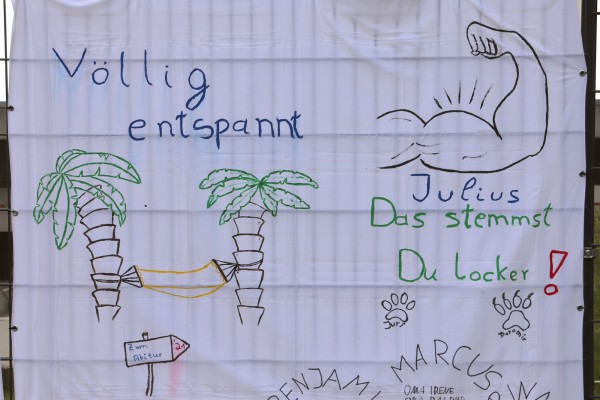 Völlig
entspannt
Julius
Das stemmst
Du locker!
Zum
Abitur
MARCUS
OMA IRENE